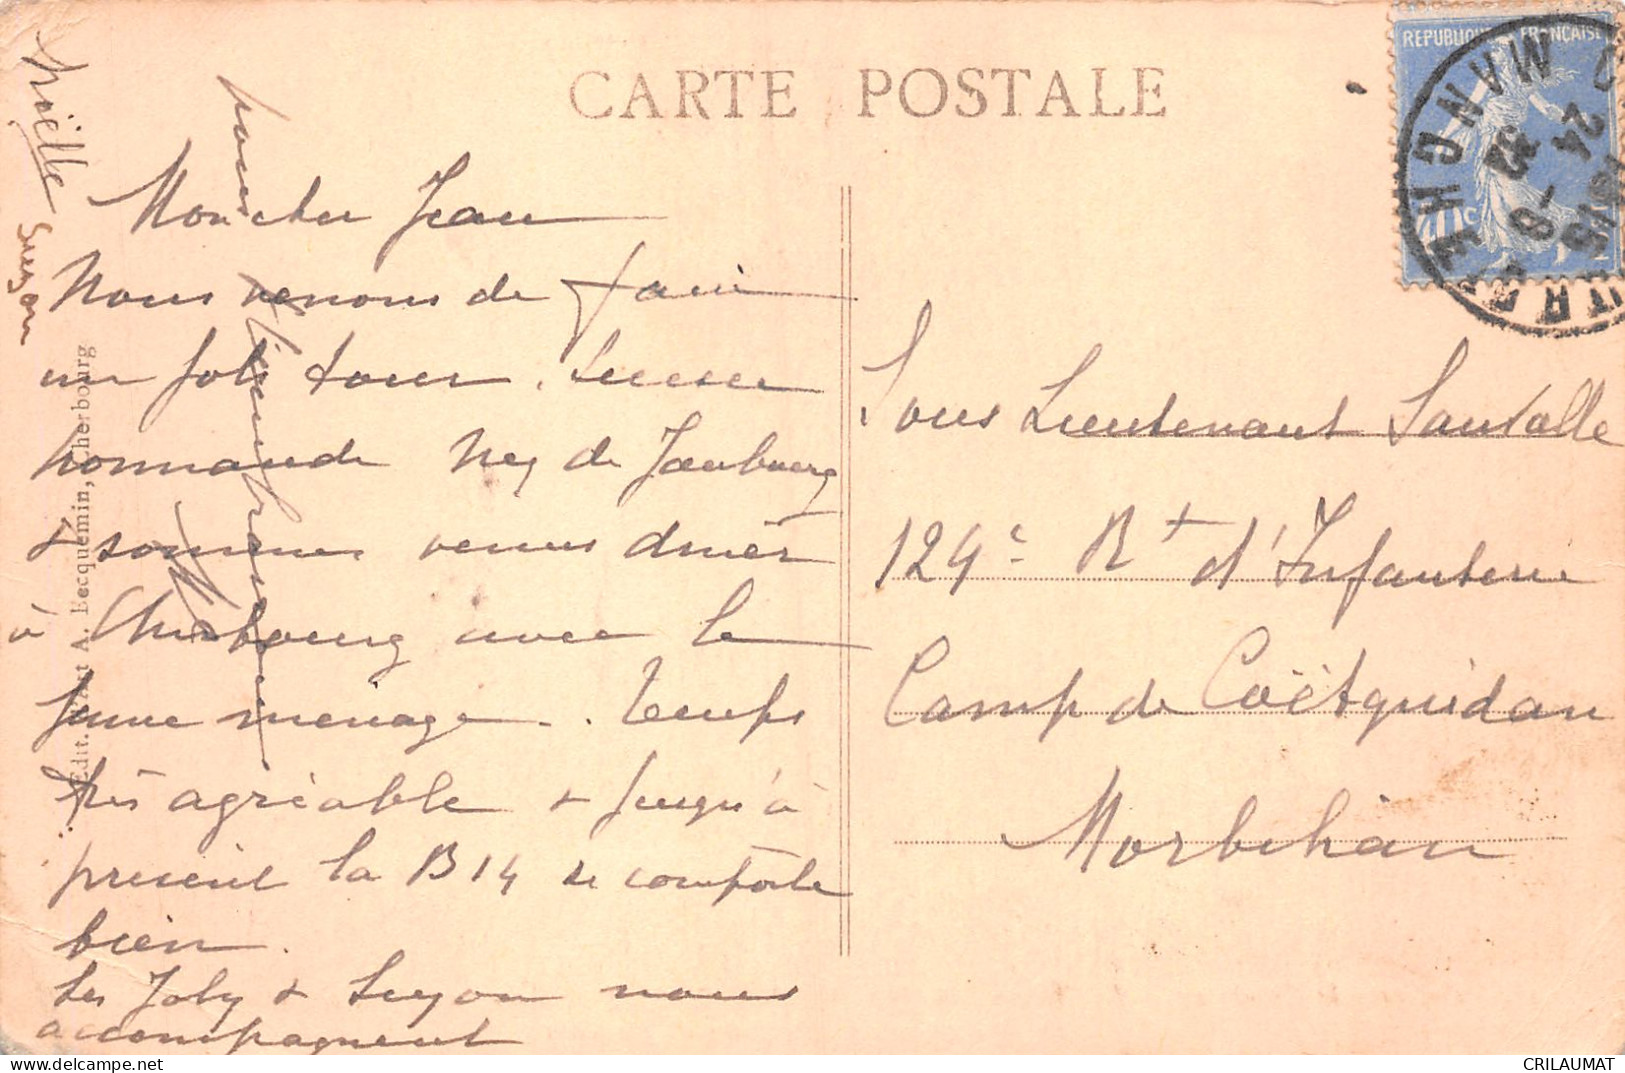 CARTE POSTALE
REPUBLIQUE FRANÇAISE
40c
MANCHE
24
32
Noëlle
Suzon
Mon cher Jean
Nous venons de faire
un joli tour. Suisse
normande Nez de Jaubourg
& sommes venus diner
à Cherbourg avec le
jeune ménage. Temps
très agréable & jusqu'à
présent la B14 se comporte
bien.
Les Joly & Suzon nous
accompagnent
Edit. d'Art A. Becquemin, Cherbourg
Sous Lieutenant Santalle
124e Rt d'Infanterie
Camp de Coëtquidan
Morbihan
CRILAUMAT